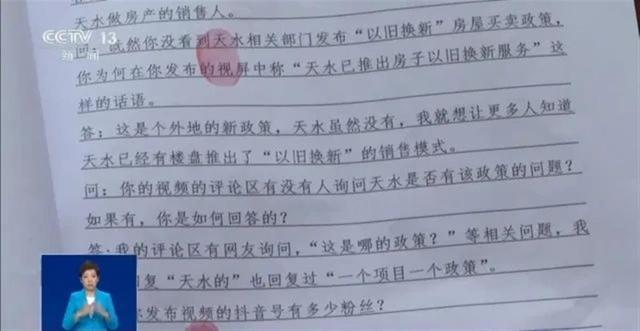 CCTV 13
新闻
天水做房产的销售人。
问:既然你没看到天水相关部门发布“以旧换新”房屋买卖政策,
你为何在你发布的视屏中称“天水已推出房子以旧换新服务”这
样的话语。
答:这是个外地的新政策,天水虽然没有,我就想让更多人知道
天水已经有楼盘推出了“以旧换新”的销售模式。
问:你的视频的评论区有没有人询问天水是否有该政策的问题?
如果有,你是如何回答的?
答:我的评论区有网友询问,“这是哪的政策?”等相关问题,我
回复“天水的”也回复过“一个项目一个政策”。
你发布视频的抖音号有多少粉丝?